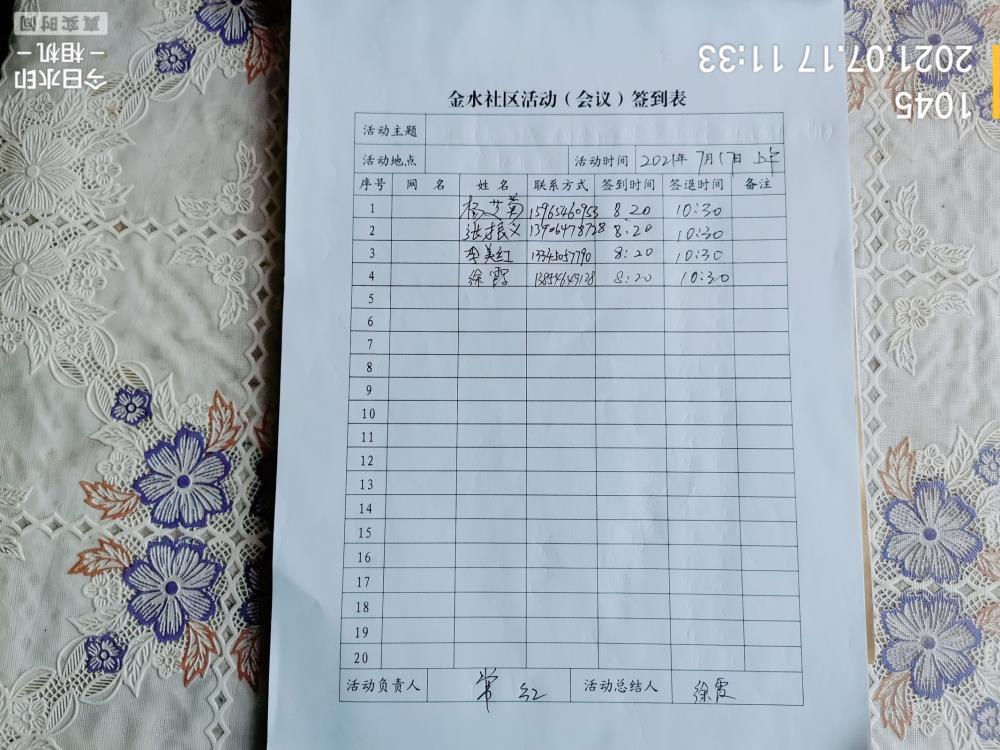 金水社区活动（会议）签到表
活动主题
活动地点 活动时间 2021年 7月17日 上午
序号 网 名 姓 名 联系方式 签到时间 签退时间 备注
1 杨艾菊 15965460953 8:20 10:30
2 张振义 13906478728 8:20 10:30
3 李美红 13345057790 8:20 10:30
4 徐霞 8:20 10:30
5
6
7
8
9
10
11
12
13
14
15
16
17
18
19
20
活动负责人 常红 活动总结人 徐霞
1045
2021.07.17 11:33
今日水印
－相机－
真实时间